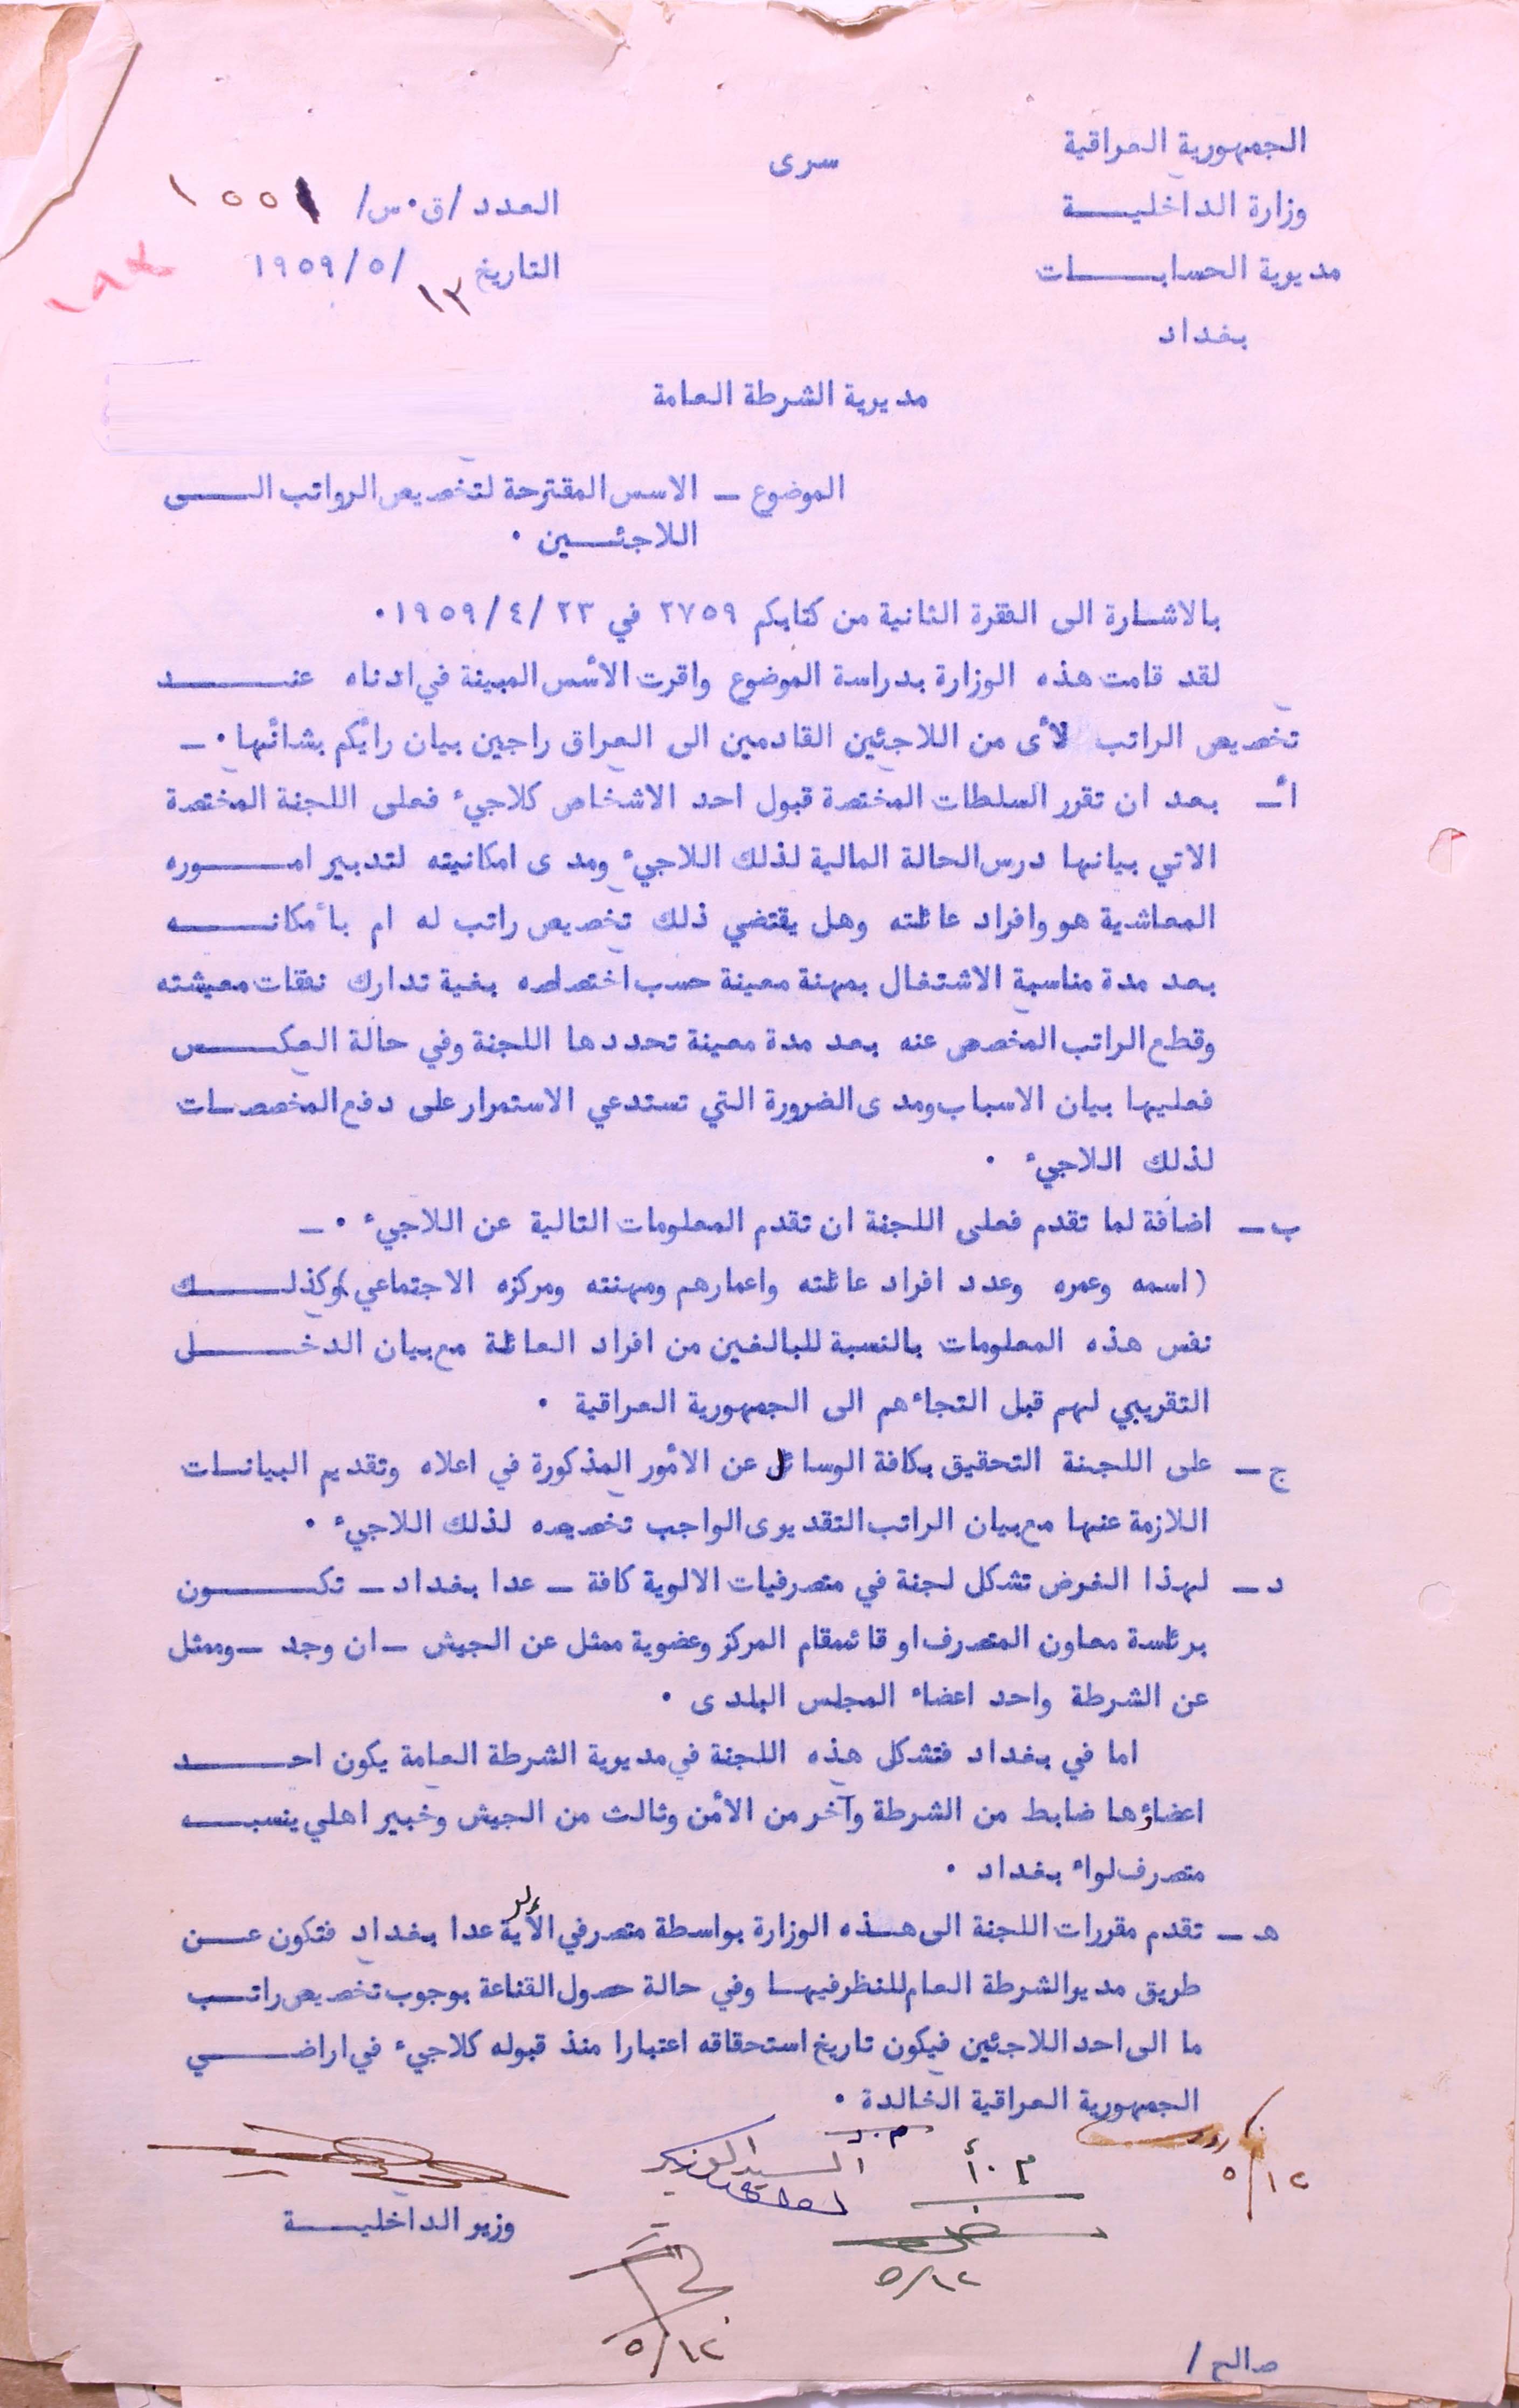 الجمهورية العراقية
سرى
وزارة الداخليـــــة
العدد /ق.س/ ١٥٥١
مديرية الحسابـــــات
التاريخ ١٣/٥/١٩٥٩
١٩٨
بغداد
مديرية الشرطة العامة
الموضوع ـ الاسس المقترحة لتخصيص الرواتب الـــــى
اللاجئـــــين .
بالاشارة الى الفقرة الثانية من كتابكم ٢٧٥٩ في ٢٣/٤/١٩٥٩.
لقد قامت هذه الوزارة بدراسة الموضوع واقرت الأسس المبينة في ادناه عنـــــد
تخصيص الراتب لأى من اللاجئين القادمين الى العراق راجين بيان رأيكم بشأنها . ـ
أ ـ بعد ان تقرر السلطات المختصة قبول احد الاشخاص كلاجيء فعلى اللجنة المختصة
الاتي بيانها درس الحالة المالية لذلك اللاجيء ومدى امكانيته لتدبير امـــــوره
المعاشية هو وافراد عائلته وهل يقتضي ذلك تخصيص راتب له ام بأمكانـــــه
بعد مدة مناسبة الاشتغال بمهنة معينة حسب اختصاصه بغية تدارك نفقات معيشته
وقطع الراتب المخصص عنه بعد مدة معينة تحددها اللجنة وفي حالة العكـــــس
فعليها بيان الاسباب ومدى الضرورة التي تستدعي الاستمرار على دفع المخصصـات
لذلك اللاجيء .
ب ـ اضافة لما تقدم فعلى اللجنة ان تقدم المعلومات التالية عن اللاجيء . ـ
(اسمه وعمره وعدد افراد عائلته واعمارهم ومهنته ومركزه الاجتماعي) وكذلـــــك
نفس هذه المعلومات بالنسبة للبالغين من افراد العائلة مع بيان الدخـــــل
التقريبي لهم قبل التجاءهم الى الجمهورية العراقية .
ج ـ على اللجنة التحقيق بكافة الوسائل عن الأمور المذكورة في اعلاه وتقديم البيانـات
اللازمة عنها مع بيان الراتب التقديرى الواجب تخصيصه لذلك اللاجيء .
د ـ لهذا الغرض تشكل لجنة في متصرفيات الالوية كافة ـ عدا بغداد ـ تكـــــون
برئاسة معاون المتصرف او قائممقام المركز وعضوية ممثل عن الجيش ـ ان وجد ـ وممثل
عن الشرطة واحد اعضاء المجلس البلدى .
اما في بغداد فتشكل هذه اللجنة في مديرية الشرطة العامة يكون احـــــد
اعضاؤها ضابط من الشرطة وآخر من الأمن وثالث من الجيش وخبير اهلي ينسبـــــه
متصرف لواء بغداد .
هـ ـ تقدم مقررات اللجنة الى هـذه الوزارة بواسطة متصرفي الألوية عدا بغداد فتكون عـــن
طريق مدير الشرطة العام للنظر فيهـا وفي حالة حصول القناعة بوجوب تخصيص راتـــب
ما الى احد اللاجئين فيكون تاريخ استحقاقه اعتبارا منذ قبوله كلاجيء في اراضـــــي
الجمهورية العراقية الخالدة .
السيد الوزير
م . أ
١٢/٥
وزير الداخليـــــة
١٢/٥
١٢/٥
صالح /